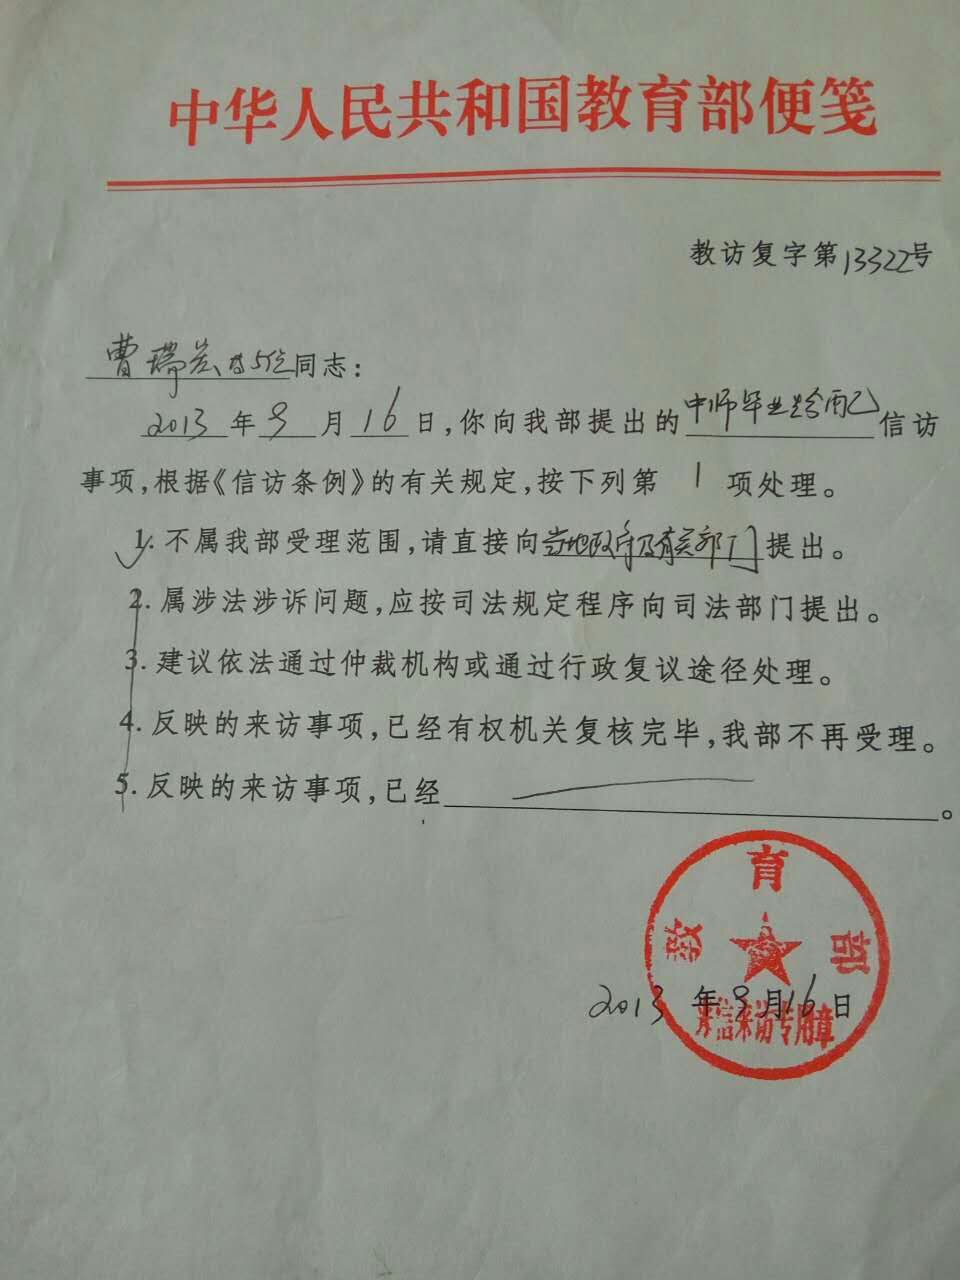 中华人民共和国教育部便笺
教访复字第13322号
曹瑞宏等5位同志：
2013年9月16日，你向我部提出的中师毕业生分配信访
事项，根据《信访条例》的有关规定，按下列第 1 项处理。
1. 不属我部受理范围，请直接向当地政府及有关部门提出。
2. 属涉法涉诉问题，应按司法规定程序向司法部门提出。
3. 建议依法通过仲裁机构或通过行政复议途径处理。
4. 反映的来访事项，已经有权机关复核完毕，我部不再受理。
5. 反映的来访事项，已经 。
教育部
来信来访专用章
2013年9月16日